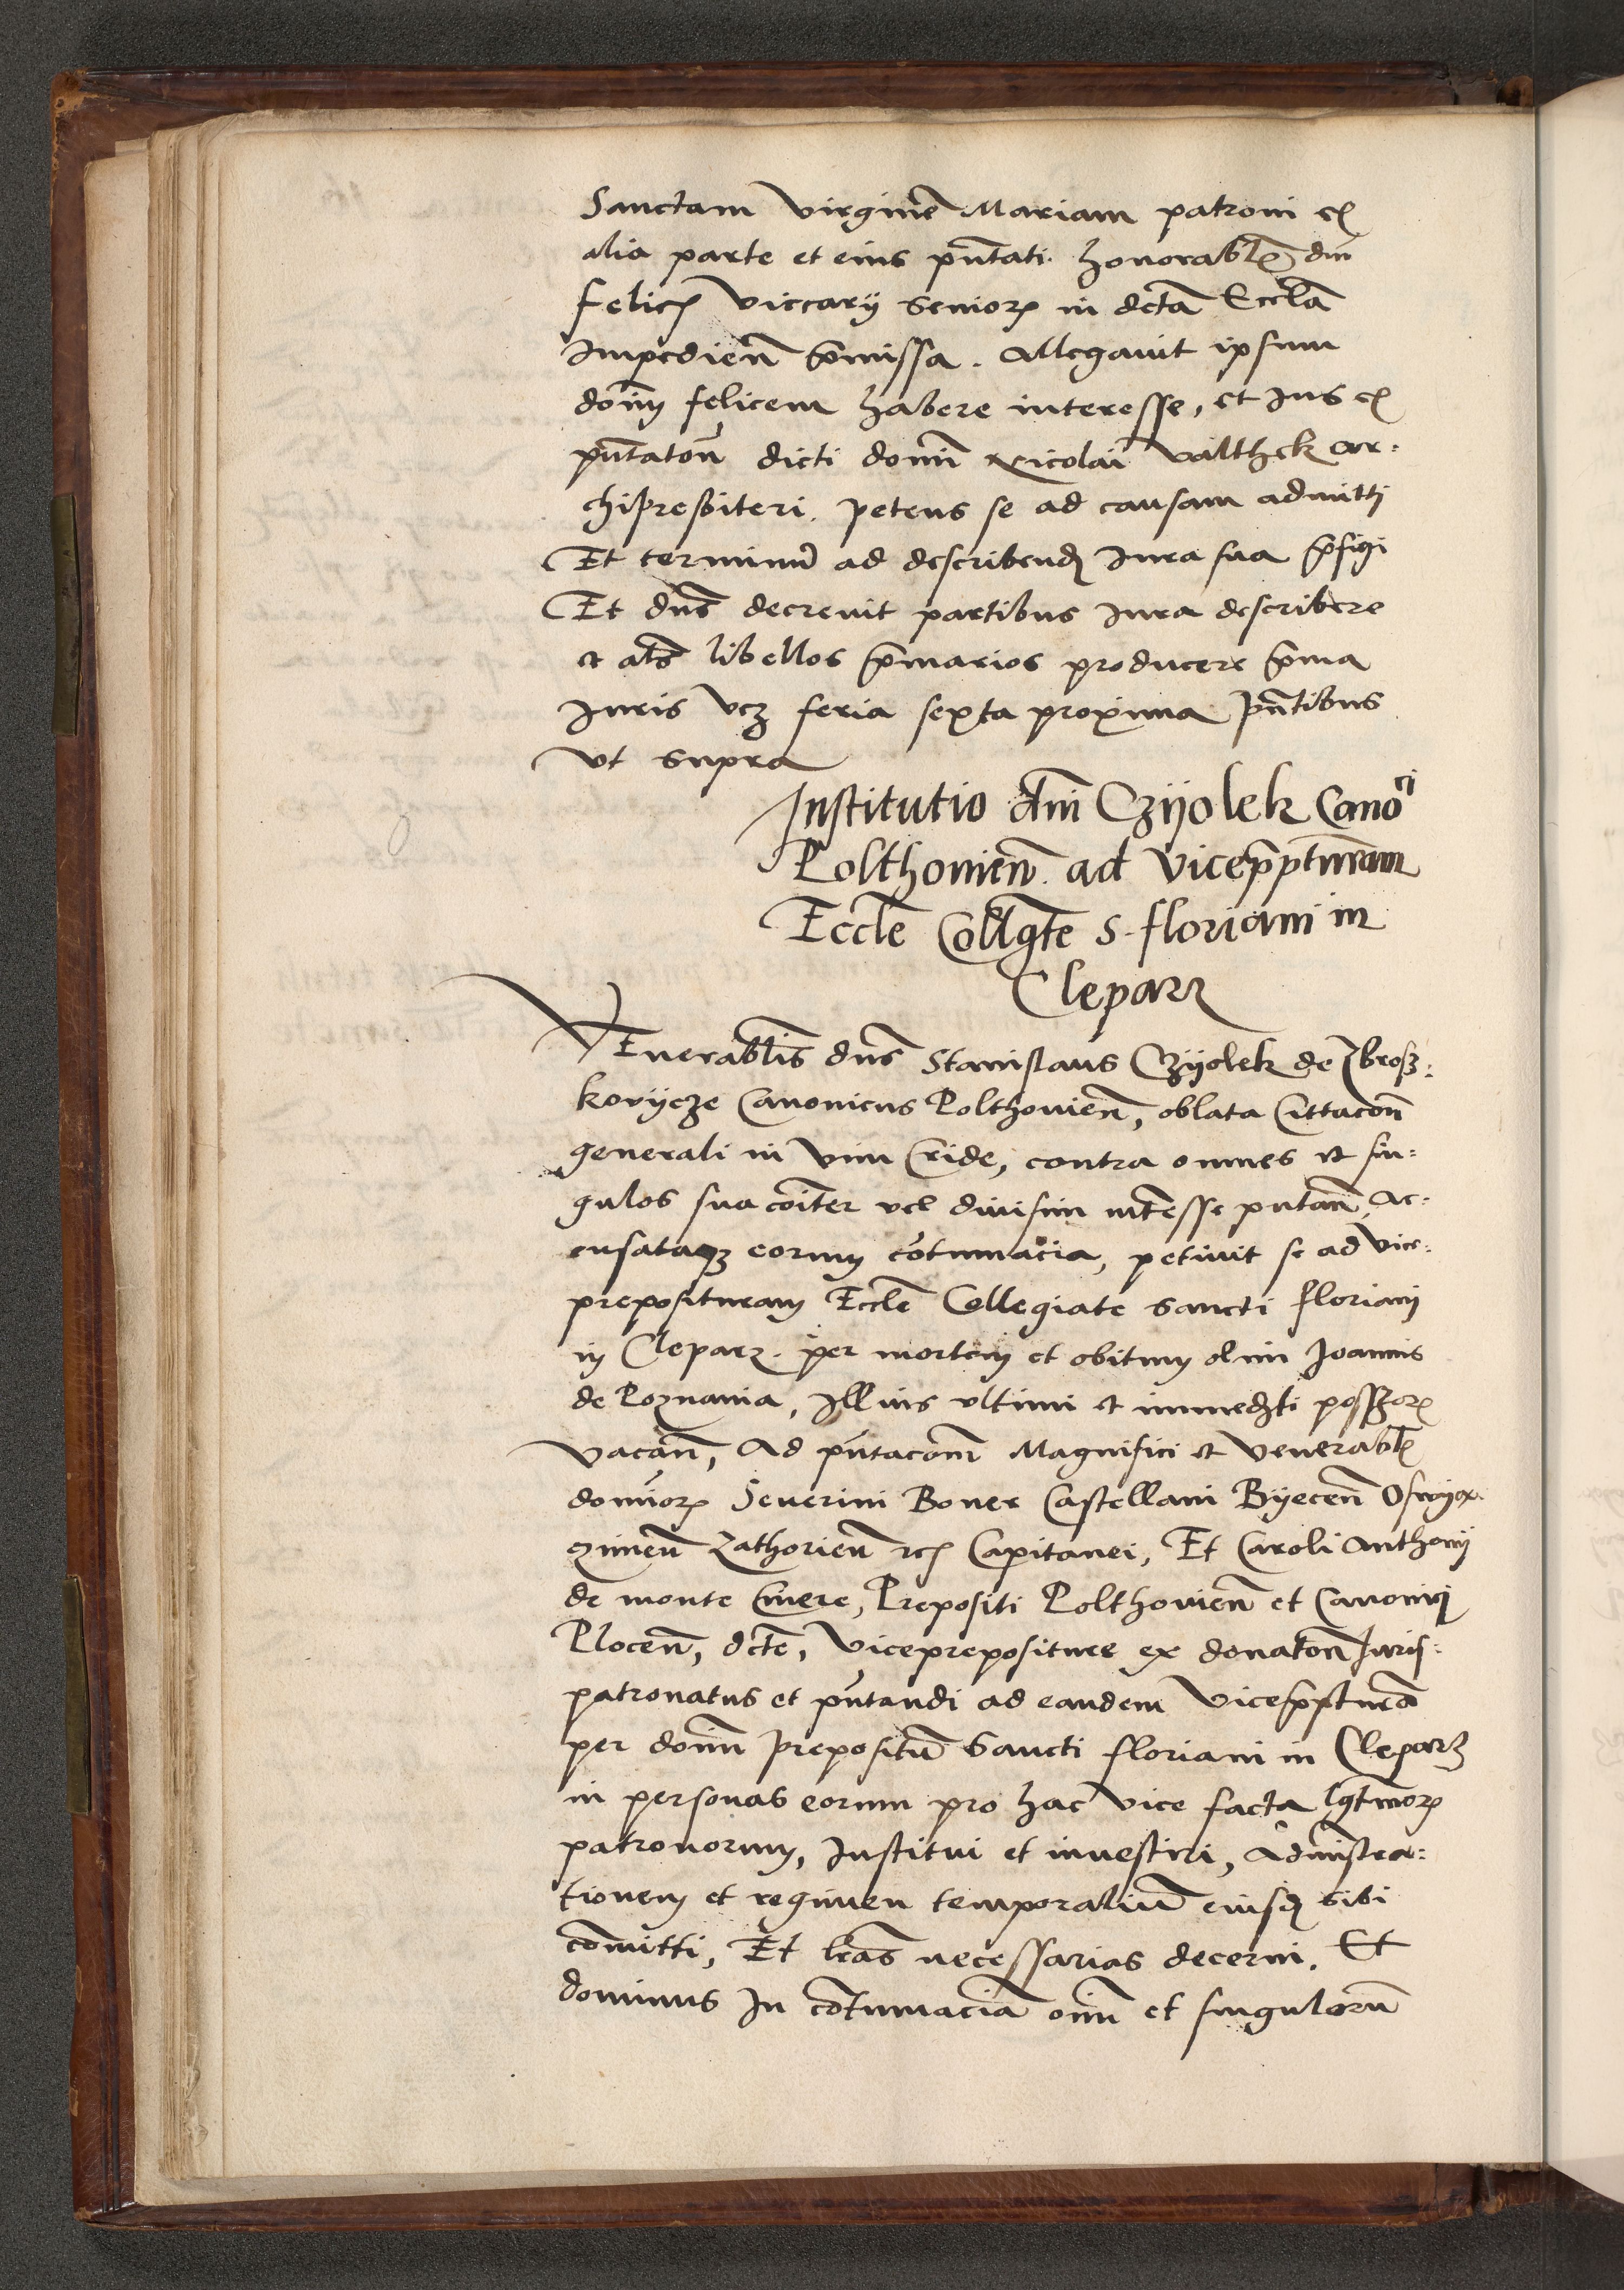 Sanctam virginē Mariam patroni ex
alia parte et eius pn̄tati honorabiłꝭ dni
felicꝭ viccarij senioꝝ in dcta Eccła
Impedien̄ p̄missa. Allegauit ipsum
domm̄ felicem habere interesse, et Ius ex
pn̄taton̄ dicti domi Nicolai Valthek ar-
chipresbiteri. petens se ad causam admitti
Et terminū ad describend̄ Iura sua p̄figi
Et dns̄ decreuit partibus Iura describere
et als̄ libellos p̄marios producere p̄ma
Iuris vcz feria sexta proxima pn̄tibus
vt supra
Institutio dni Czÿolek Canoci
Polthouien̄. ad vicepp̄turam
Eccłe Collgte S. floriani in
Cleparz
VEnerabłis dns̄ Stanislaus Czÿolek de Zbrosz-
kovÿcze Canonicus Polthouien̄, oblata Cittacon̄
generali in vim Cride, contra omnes et sin-
gulos sua coīter vel diuisim int̄esse putan̄, ac-
cusataqꝫ eorum cōtumacia, petiuit se ad vice-
preposituram Eccłe Collegiate sancti floriani
in Cleparz. per mortem et obitum olim Joannis
de Poznania, Illius vltimi et immedti possꝫoꝝ
vacan̄, Ad pn̄tacom̄ Magnifici et venerabłꝭ
domīoꝝ Seuerini Boner Castellani Bÿecen̄ Oswÿą-
czimen̄ Zathorien̄ rcꝭ Capitanei, Et Caroli Anthonij
de monte Cinere, Prepositi Polthouien̄ et Canonici
Plocen̄, dcte, viceprepositure ex donaton̄ Juris-
patronatus et pn̄tandi ad eandem vicepp̄turā
per domm̄ prepositū Sancti floriani in Cleparz
in personas eorum pro hac vice facta lgt̄imoꝝ
patronorum, Institui et inuestiri, Administra-
tionem et regimen temporaliū eiusd̄ sibi
cōmitti, Et lrās necessarias decerni. Et
dominus In cōtumaciā oīm et singulorū